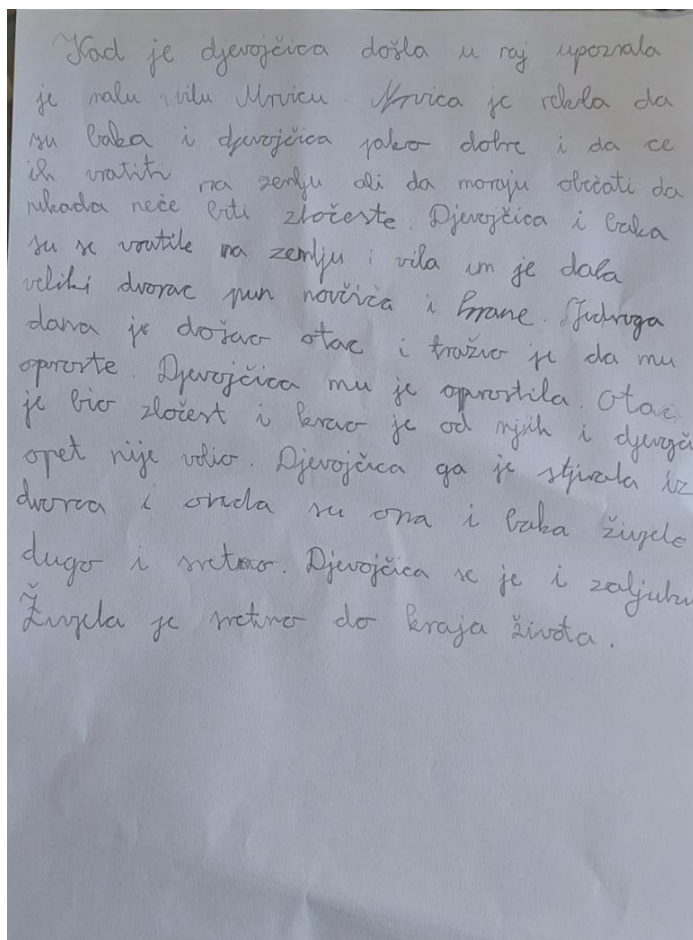 Kad je djevojčica došla u raj upoznala
je malu vilu Mrvicu. Mrvica je rekla da
su baka i djevojčica jako dobre i da ce
ih vratiti na zemlju ali da moraju obećati da
nikada neće biti zločeste. Djevojčica i baka
su se vratile na zemlju i vila im je dala
veliki dvorac pun novčića i hrane. Jednoga
dana je došao otac i tražio je da mu
oproste. Djevojčica mu je oprostila. Otac
je bio zločest i krao je od njih i djevojči
opet nije volio. Djevojčica ga je stjerala iz
dvorca i onda su ona i baka živjele
dugo i sretno. Djevojčica se je i zaljubi
Živjela je sretno do kraja života.